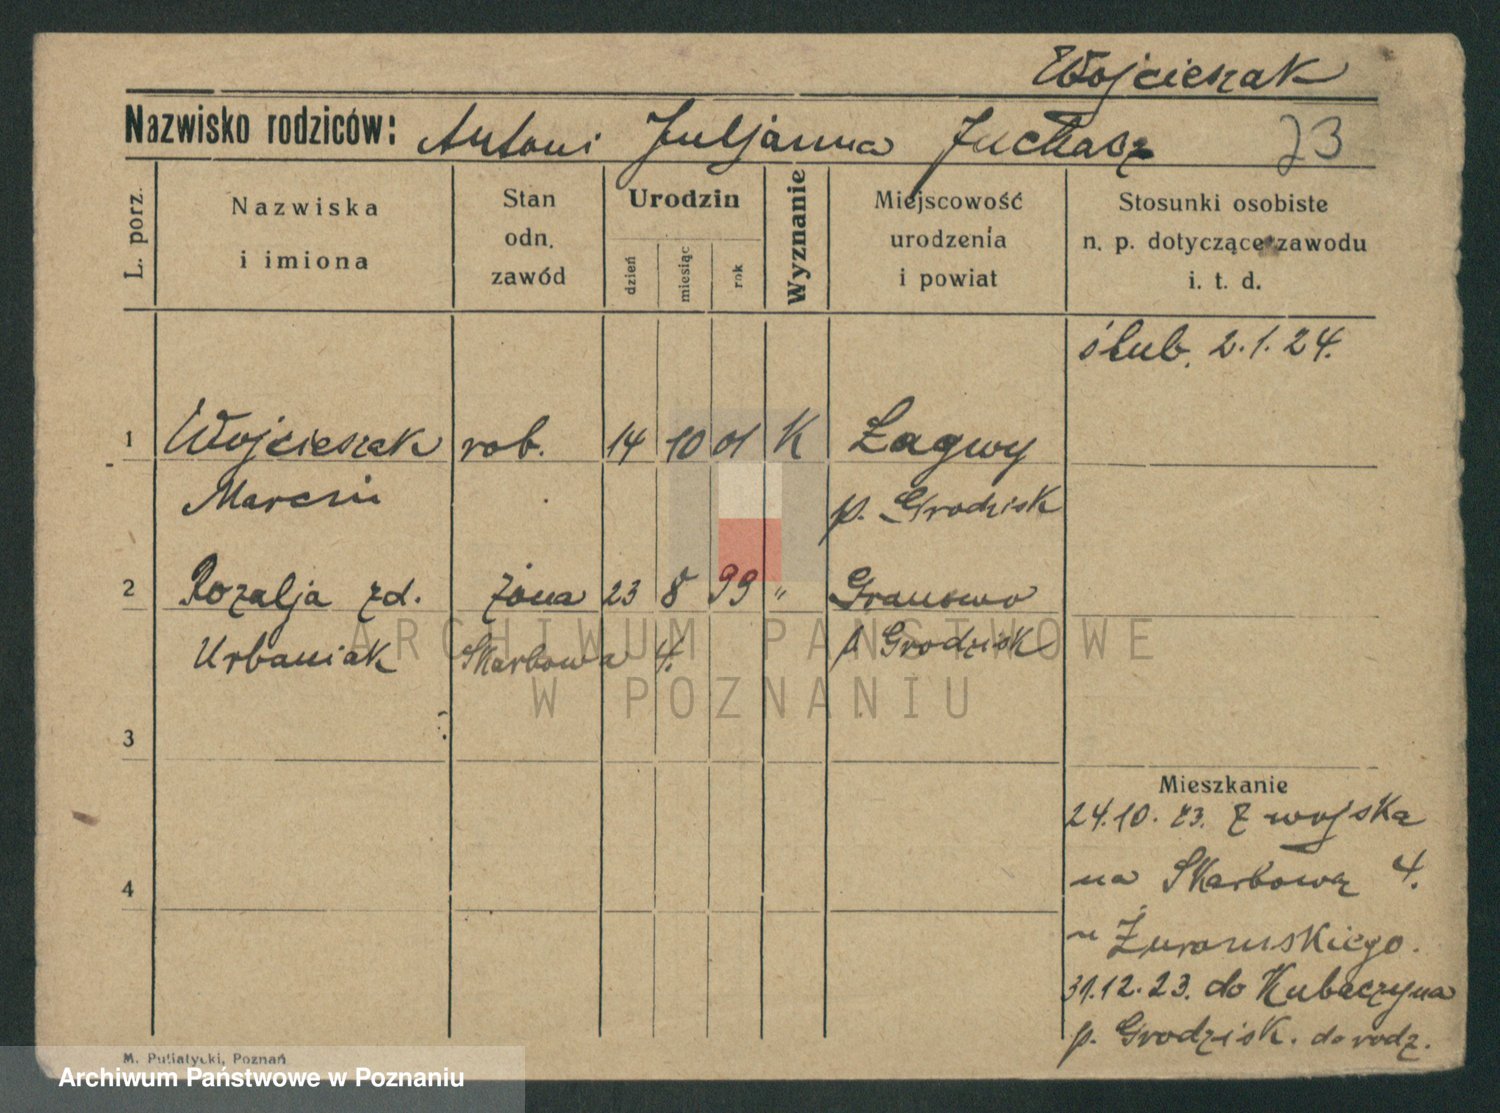 Wojcieszak
Nazwisko rodziców: Antoni Juljanna Juchasz 73
L. porz. Nazwiska i imiona Stan odn. zawód Urodzin dzień miesiąc rok Wyznanie Miejscowość urodzenia i powiat Stosunki osobiste n. p. dotyczące zawodu i. t. d.
ślub. 2.1.24.
1 Wojcieszak rob. 14 10 01 K Łagwy
Marcin p. Grodzisk
2 Rozalja zd. żona 23 8 99 " Granowo
Urbaniak Skarbowa 4. p Grodzisk
3
Mieszkanie
24.10.23. z wojska
4 na Skarbową 4.
u
31.12.23. do Kubaczyna
p. Grodzisk. do rodz.
M. Putiatycki, Poznań
ARCHIWUM PAŃSTWOWE
W POZNANIU
Archiwum Państwowe w Poznaniu